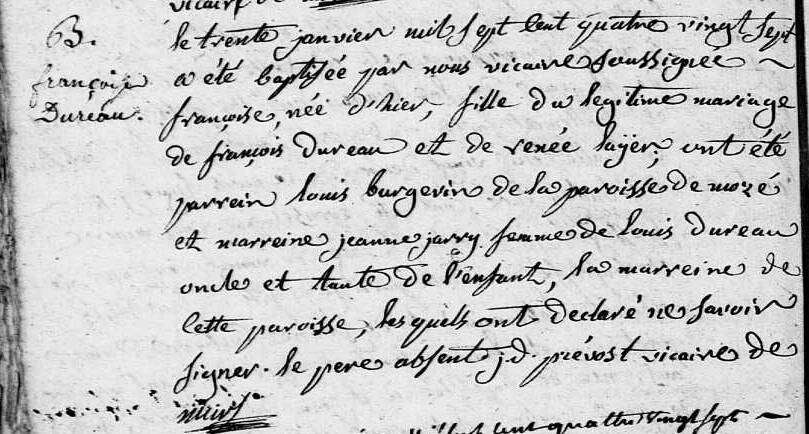 vicaire de
B.
françoise
Dureau.
le trente janvier mil sept cent quatre vingt sept
a été baptisée par nous vicaire soussignée
françoise, née d'hier, fille du legitime mariage
de françois dureau et de renée layer, ont été
parrein louis burgevin de la paroisse de mozé
et marreine jeanne jarry femme de louis dureau
oncle et tante de l'enfant, la marreine de
cette paroisse, lesquels ont declaré ne savoir
signer. le pere absent j.d. prévost vicaire de
cent quatre vingt sept